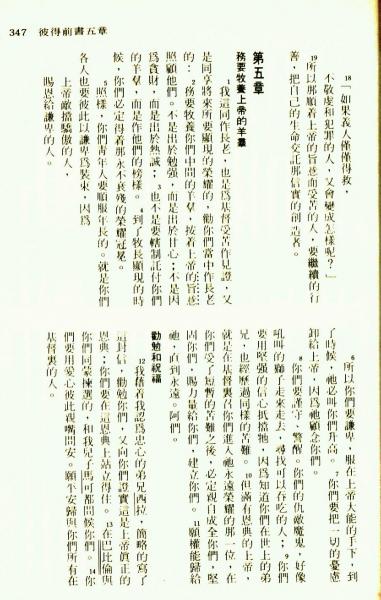 347 彼得前書五章
18「如果義人僅僅得救,
不敬虔和犯罪的人,又會變成怎樣呢?」
19所以那順着上帝的旨意而受苦的人,要繼續的行
善,把自己的生命交託那信實的創造者。
第五章
務要牧養上帝的羊羣
1我這同作長老,也是爲基督受苦作見證,又
是同享將來所要顯現的榮耀的,勸你們當中作長老
的:2務要牧養你們中間的羊羣,按着上帝的旨意
照顧他們。不是出於勉强,而是出於甘心;不是因
爲貪財,而是出於熱誠;3也不是要轄制託付你們
的羊羣,而是作他們的榜樣。4到了牧長顯現的時
候,你們必定得着那永不衰殘的榮耀冠冕。
5照樣,你們青年人要順服年長的。就是你們
各人也要彼此以謙卑爲裝束,因爲
上帝敵擋驕傲的人,
賜恩給謙卑的人。
6所以你們要謙卑,服在上帝大能的手下,到
了時候,祂必叫你們升高。7你們要把一切的憂慮
卸給上帝,因爲祂顧念你們。
8你們要謹守、警醒。你們的仇敵魔鬼,好像
吼叫的獅子走來走去,尋找可以吞吃的人;9你們
要用堅强的信心抵擋牠,因爲知道你們在世上的弟
兄,也經歷過同樣的苦難。10但滿有恩典的上帝,
就是在基督裏召你們進入祂永遠榮耀的那一位,在
你們受了短暫的苦難之後,必定親自成全你們,堅
固你們,賜力量給你們,建立你們。11願權能歸給
祂,直到永遠。阿們。
勸勉和祝福
12我藉着我認爲忠心的弟兄西拉,簡略的寫了
這封信,勸勉你們,又向你們證實這是上帝眞正的
恩典;你們要在這恩典上站立得住。13在巴比倫與
你們同蒙揀選的,和我兒子馬可都問候你們。14你
們要用愛心彼此親嘴問安。願平安歸與你們所有在
基督裏的人。